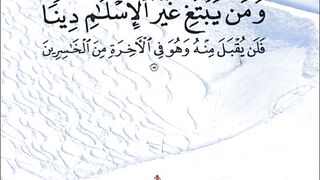 وَمَن يَبْتَغِ غَيْرَ ٱلْإِسْلَٰمِ دِينًا
فَلَن يُقْبَلَ مِنْهُ وَهُوَ فِى ٱلْءَاخِرَةِ مِنَ ٱلْخَٰسِرِينَ